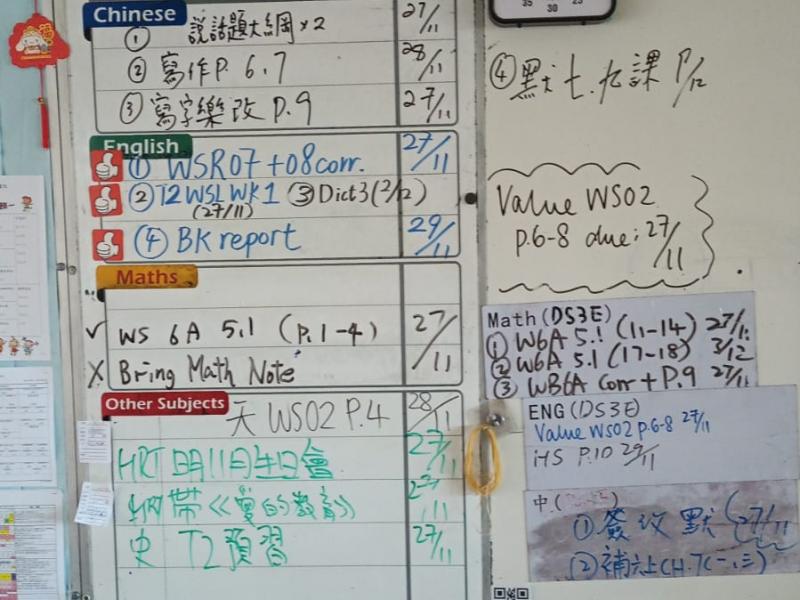 35 30 25
Chinese
① 說話題大綱 x2 27/11
② 寫作P. 6,7 28/11
③ 寫字樂改 P.9 27/11
④ 默七.九課 1/12
English
① WSR07 + 08 corr. 27/11
② T2 WSL WK1 ③ Dict3 (2/12)
(27/11)
④ BK report 29/11
Value WS02
p.6-8 due: 27/11
Maths
✓ WS 6A 5.1 (P.1-4) 27/11
X Bring Math Note
Other Subjects
天 WS02 P.4 28/11
HRT 11月生日會 27/11
HRT 帶《愛的教育》 27/11
史 T2 預習 27/11
Math (DS3E)
① W6A 5.1 (11-14) 27/11
② W6A 5.1 (17-18) 2/12
③ WB6A Corr + P.9 27/11
ENG (DS3E)
Value WS02 p.6-8 27/11
HS P.10 29/11
中.(
① 簽改默 27/11
② 補上CH.7(一,三)